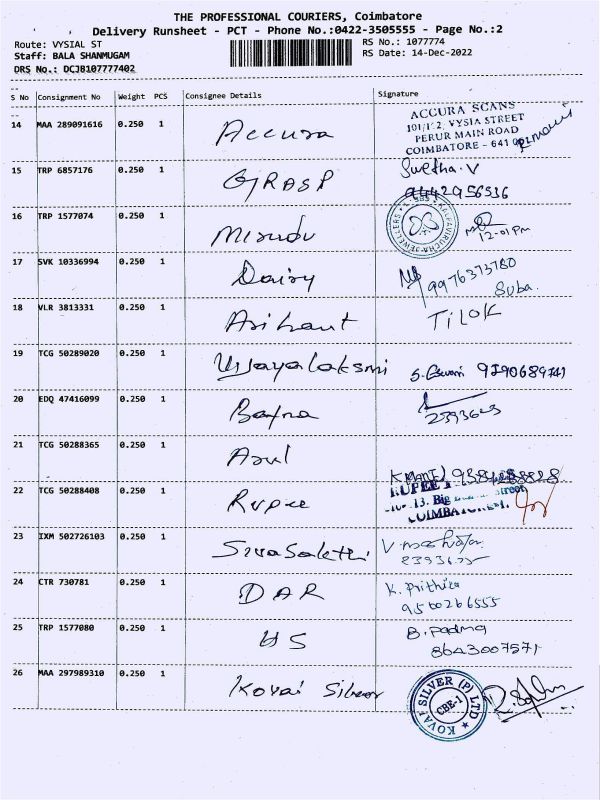 THE PROFESSIONAL COURIERS, Coimbatore
Delivery Runsheet - PCT - Phone No.:0422-3505555 - Page No.:2
Route: VYSIAL ST
RS No.: 1077774
Staff: BALA SHANMUGAM
RS Date: 14-Dec-2022
DRS No.: DCJB107777402
S No Consignment No Weight PCS Consignee Details Signature
14 MAA 289091616 0.250 1 Accura
ACCURA SCANS
101/1'2, VYSIA STREET
PERUR MAIN ROAD
COIMBATORE - 641 0
15 TRP 6857176 0.250 1 GRASP
Swetha.V
9442956536
16 TRP 1577074 0.250 1
JEWELLERS
12-01 Pm
17 SVK 10336994 0.250 1 Dairy
9976373780
Suba.
18 VLR 3813331 0.250 1 Arihant TILOK
19 TCG 50289020 0.250 1 Vijayalaksmi
20 EDQ 47416099 0.250 1 Bafna
2393623
21 TCG 50288365 0.250 1 Arul
22 TCG 50288408 0.250 1 Rupee
RUPEE
13. Big Street
COIMBATORE-1.
23 IXM 502726103 0.250 1 Sivasakthi
24 CTR 730781 0.250 1 DAR
K. Prithika
9500266555
25 TRP 1577080 0.250 1 US
B. Padma
8643007571
26 MAA 297989310 0.250 1 Kovai Silver
KOVAI SILVER (P) LTD
CBE-1